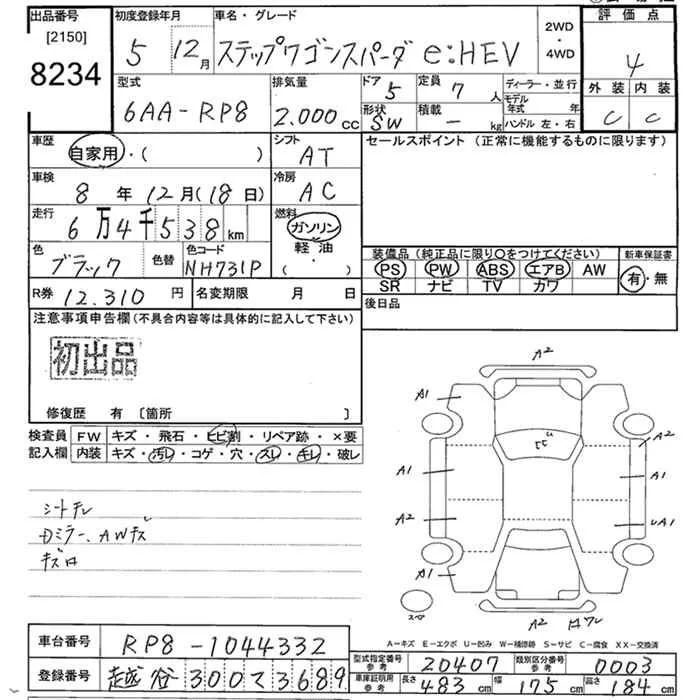 出品番号
[2150]
8234
初度登録年月
5 12月
車名・グレード
ステップワゴンスパーダ e:HEV
2WD
・
4WD
評価点
4
外装 内装
C C
型式
6AA-RP8
排気量
2.000 cc
ドア 5
形状 SW
定員 7 人
積載 - kg
ディーラー・並行
モデル年式 年
ハンドル 左・右
車歴
自家用・( )
シフト
AT
セールスポイント (正常に機能するものに限ります)
車検
8 年 12月(18日)
冷房
AC
走行
6万4千538km
燃料
ガソリン
軽油
・
( )
色
ブラック
色替
色コード
NH731P
装備品(純正品に限り○をつけてください)
PS PW ABS エアB AW
SR ナビ TV カワ
新車保証書
有・無
R券 12.310 円
名変期限 月 日
後日品
注意事項申告欄(不具合内容等は具体的に記入して下さい)
初出品
修復歴 有 [箇所 ]
検査員 FW キズ・飛石・ヒビ割・リペア跡・×要
記入欄 内装 キズ・汚レ・コゲ・穴・スレ・キレ・破レ
シートキレ
Dミラー、AWキズ
A2
A1 A1
A2
A1 A1
A2 uA1
A1 A1
スペア
A2
A-キズ E-エクボ U-凹み W-補修跡 S-サビ C-腐食 XX-交換済
車台番号 RP8-1044332
登録番号 越谷 300 て 3689
型式指定番号 参考 20407
類別区分番号 参考 0003
車庫証明用 参考 長さ 483 cm 幅 175 cm 高さ 184 cm